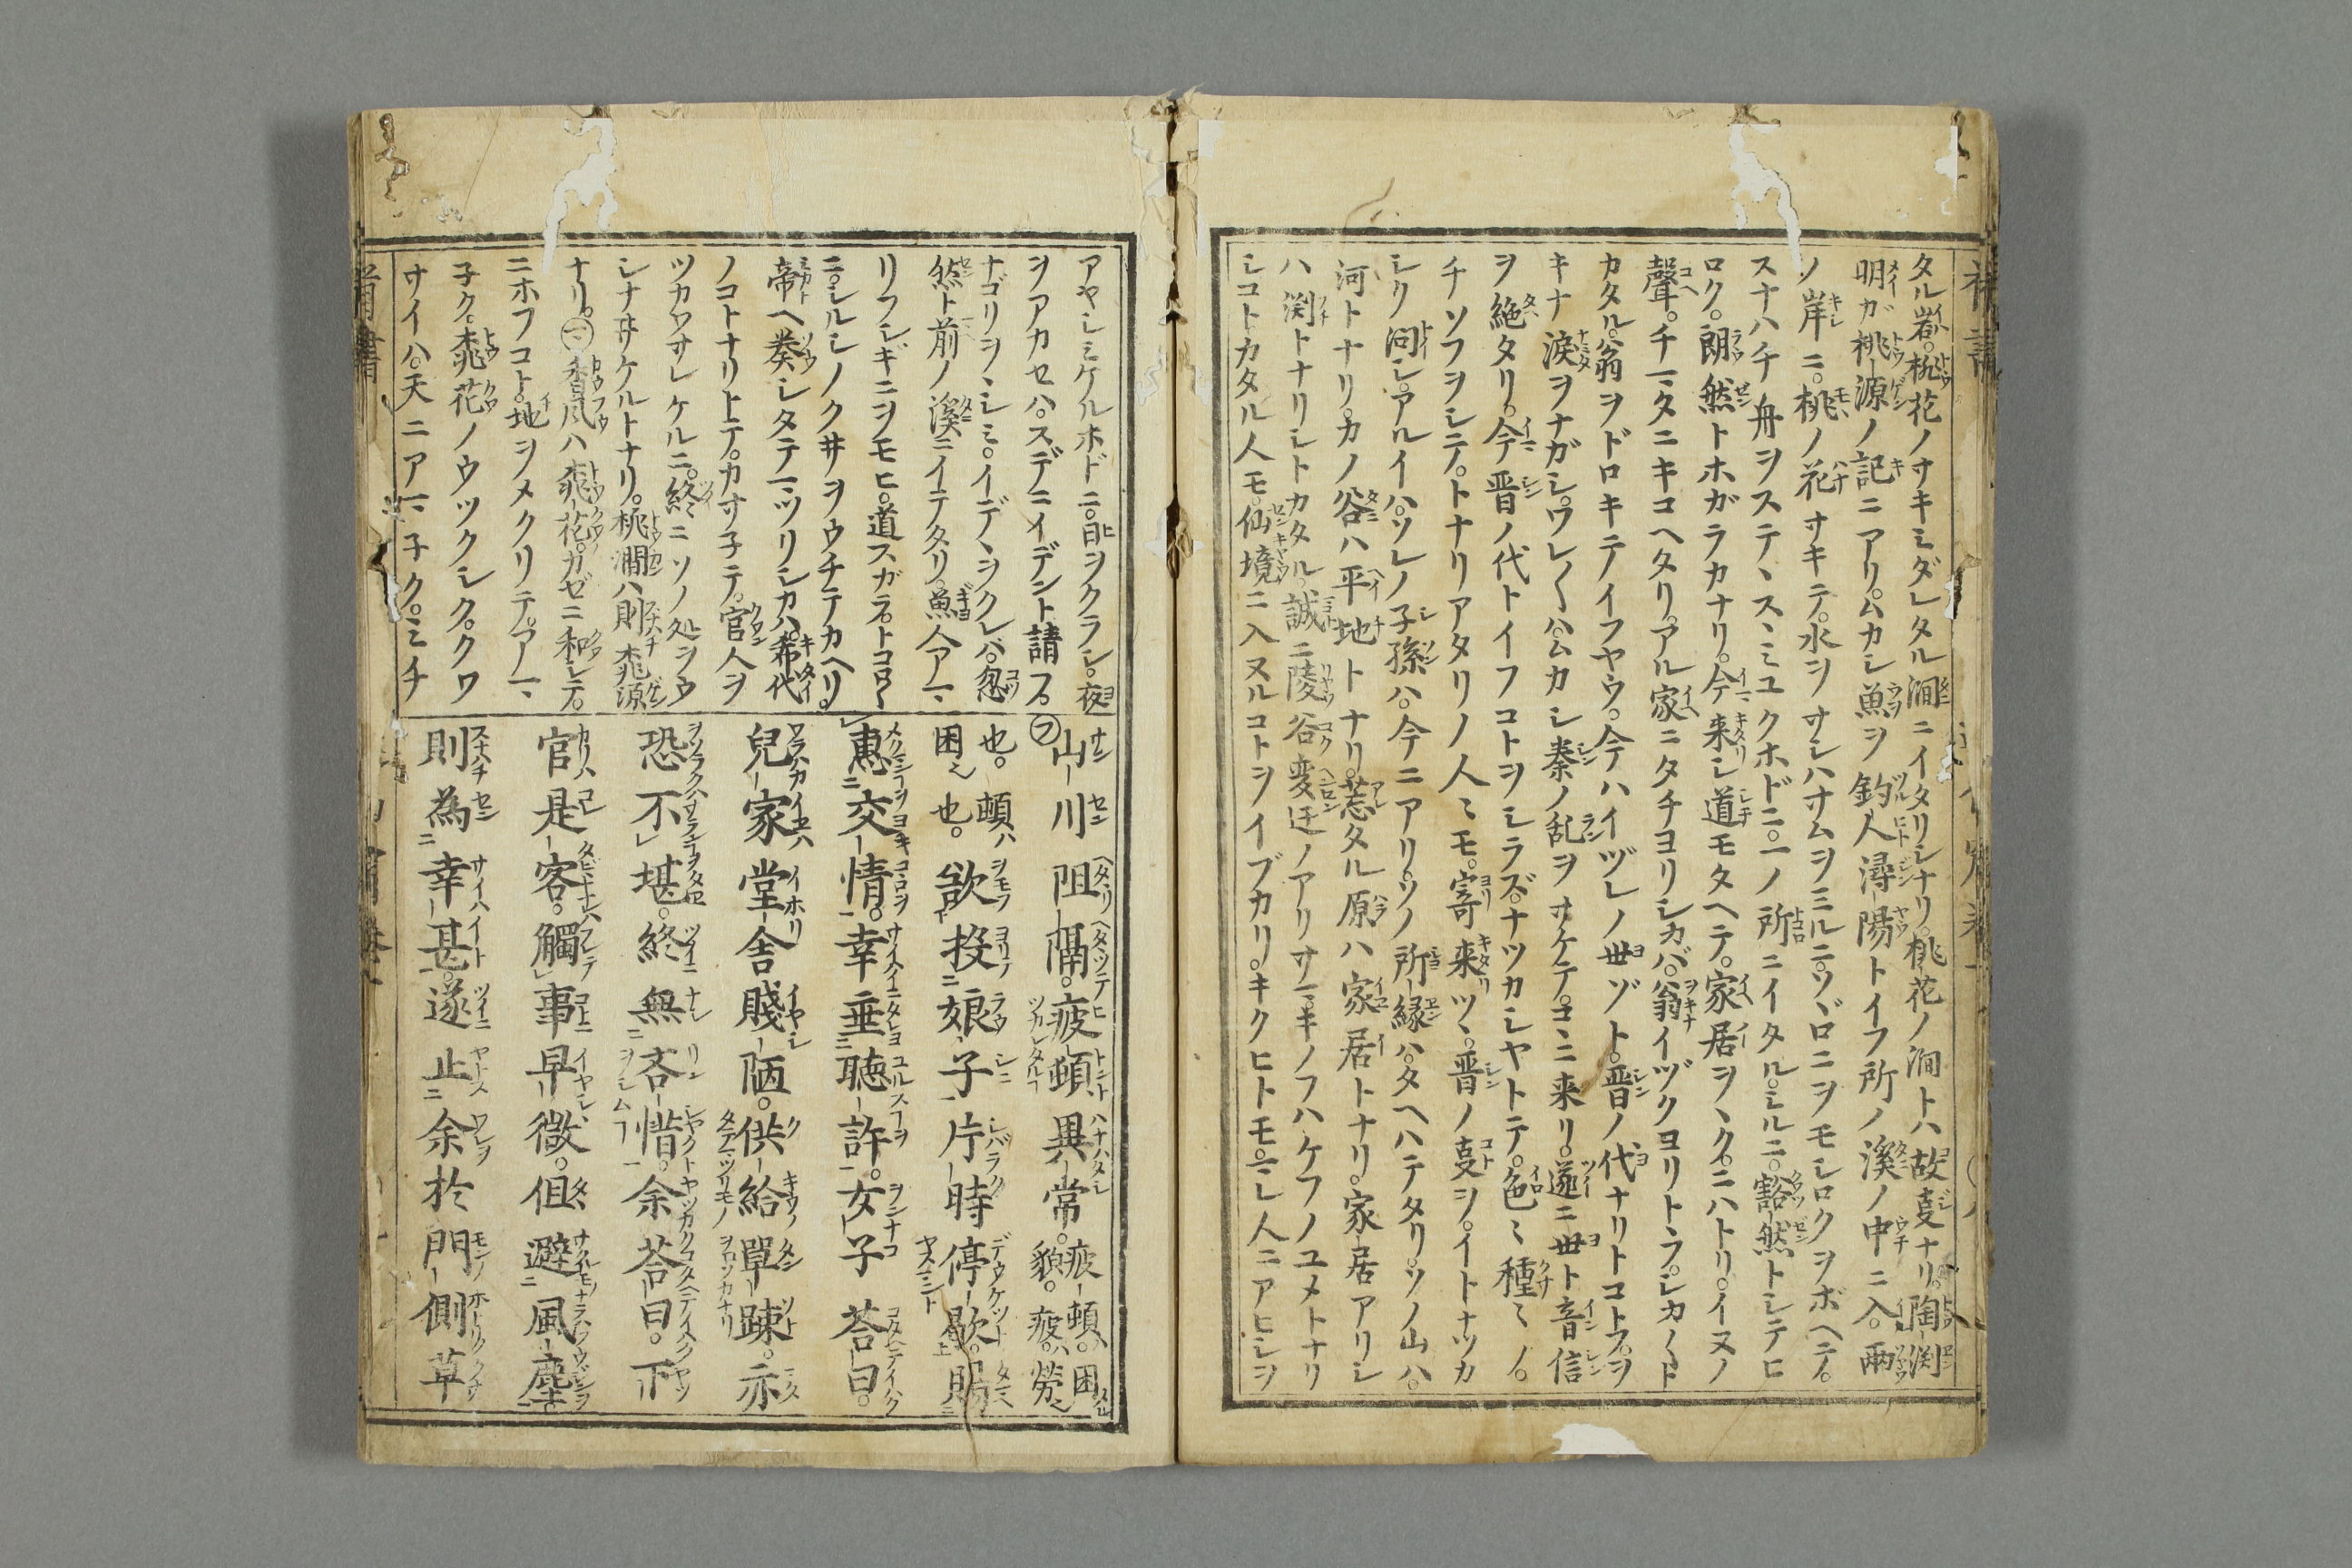 タル岩。桃花ノサキミダレタル澗ニイタリシナリ。桃花ノ澗トハ故事ナリ。陶渕
明ガ桃源ノ記ニアリ。ムカシ魚ヲ釣人潯陽トイフ所ノ溪ノ中ニ入。両
ノ岸ニ。桃ノ花サキテ。水ヲサシハサムヲミルニ。ソヾロニヲモシロクヲボヘテ。
スナハチ舟ヲステヽスヽミユクホドニ。一ノ所ニイタル。ミルニ。豁然トシテヒ
ロク。朗然トホガラカナリ。今来シ道モタヘテ。家居ヲヽク。ニハトリ。イヌノ
聲。チマタニキコヘタリ。アル家ニタチヨリシカバ。翁イヅクヨリトヽフ。シカ〱ト
カタル。翁ヲドロキテイフヤウ。今ハイヅレノ世ゾト。晋ノ代ナリトコトフ。ヲ
キナ涙ヲナガシ。ワレ〱ハ。ムカシ秦ノ乱ヲサケテ。コヽニ来リ。遂ニ世ト音信
ヲ絶タリ。今晋ノ代トイフコトヲシラズ。ナツカシヤトテ。色ミ種ミノ。
チソフヲシテ。トナリアタリノ人ミモ。寄来ツヽ。晋ノ事ヲ。イトナツカ
シク問シ。アルイハ。ソレノ子孫ハ。今ニアリ。ソノ所縁ハ。タヘハテタリ。ソノ山ハ。
河トナリ。カノ谷ハ平地トナリ。荒タル原ハ家居トナリ。家居アリシ
ハ渕トナリシトカタル。誠ニ陵谷変迁ノアリサマ。キノフハケフノユメトナリ
シコトカタル人モ。仙境ニ入ヌルコトヲイブカリ。キクヒトモ。マレ人ニアヒシヲ
アヤシミケルホドニ。日ヲクラシ。夜
ヲアカセハ。スデニイデント請フ。
ナゴリヲヽシミ。イデヽヲクレバ。忽
然ト前ノ溪ニイテタリ。魚人アマ
リフシギニヲモヒ。道スガラ。トコロ〱
ニ。シルシノクサヲウチテカヘリ。
帝ヘ奏シタテマツリシカハ。希代
ノコトナリトテ。カサ子テ。官人ヲ
ツカワサレケルニ。終ニソノ処ヲウ
シナヰケルトナリ。桃澗ハ則桃源
ナリ。香風ハ桃花。カゼニ和シテ。
ニホフコト。地ヲメクリテ。アマ
子ク。桃花ノウツクシク。クワ
サイハ。天ニアマ子ク。ミチ
山川阻隔。疲頓異常。疲頓ハ。困
貌。疲ハ。労
也。頓ハ
困也。欲投娘子片時停歇。賜
惠交情。幸垂聴許。女子荅曰。
兒家堂舎賤陋。供給單踈。亦
恐不堪。終無吝惜。余荅曰。下
官是客。觸事早微。但避風塵。
則為幸甚。遂止余於門側草